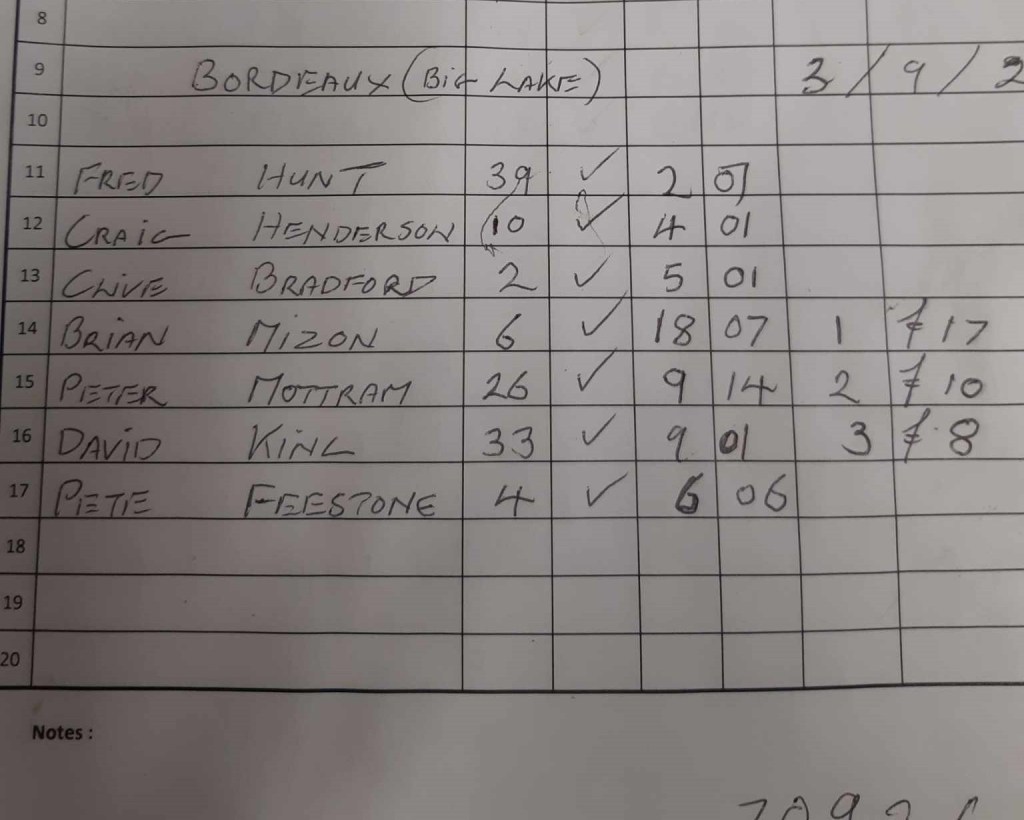 8
9 BORDEAUX (BIG LAKE) 3/9/2
10
11 FRED HUNT 39 ✓ 2
12 CRAIG HENDERSON 10 ✓ 4 01
13 CLIVE BRADFORD 2 ✓ 5 01
14 BRIAN MIZON 6 ✓ 18 07 1 £17
15 PETER MOTTRAM 26 ✓ 9 14 2 £10
16 DAVID KING 33 ✓ 9 01 3 £8
17 PETE FEESTONE 4 ✓ 6 06
18
19
20
Notes :